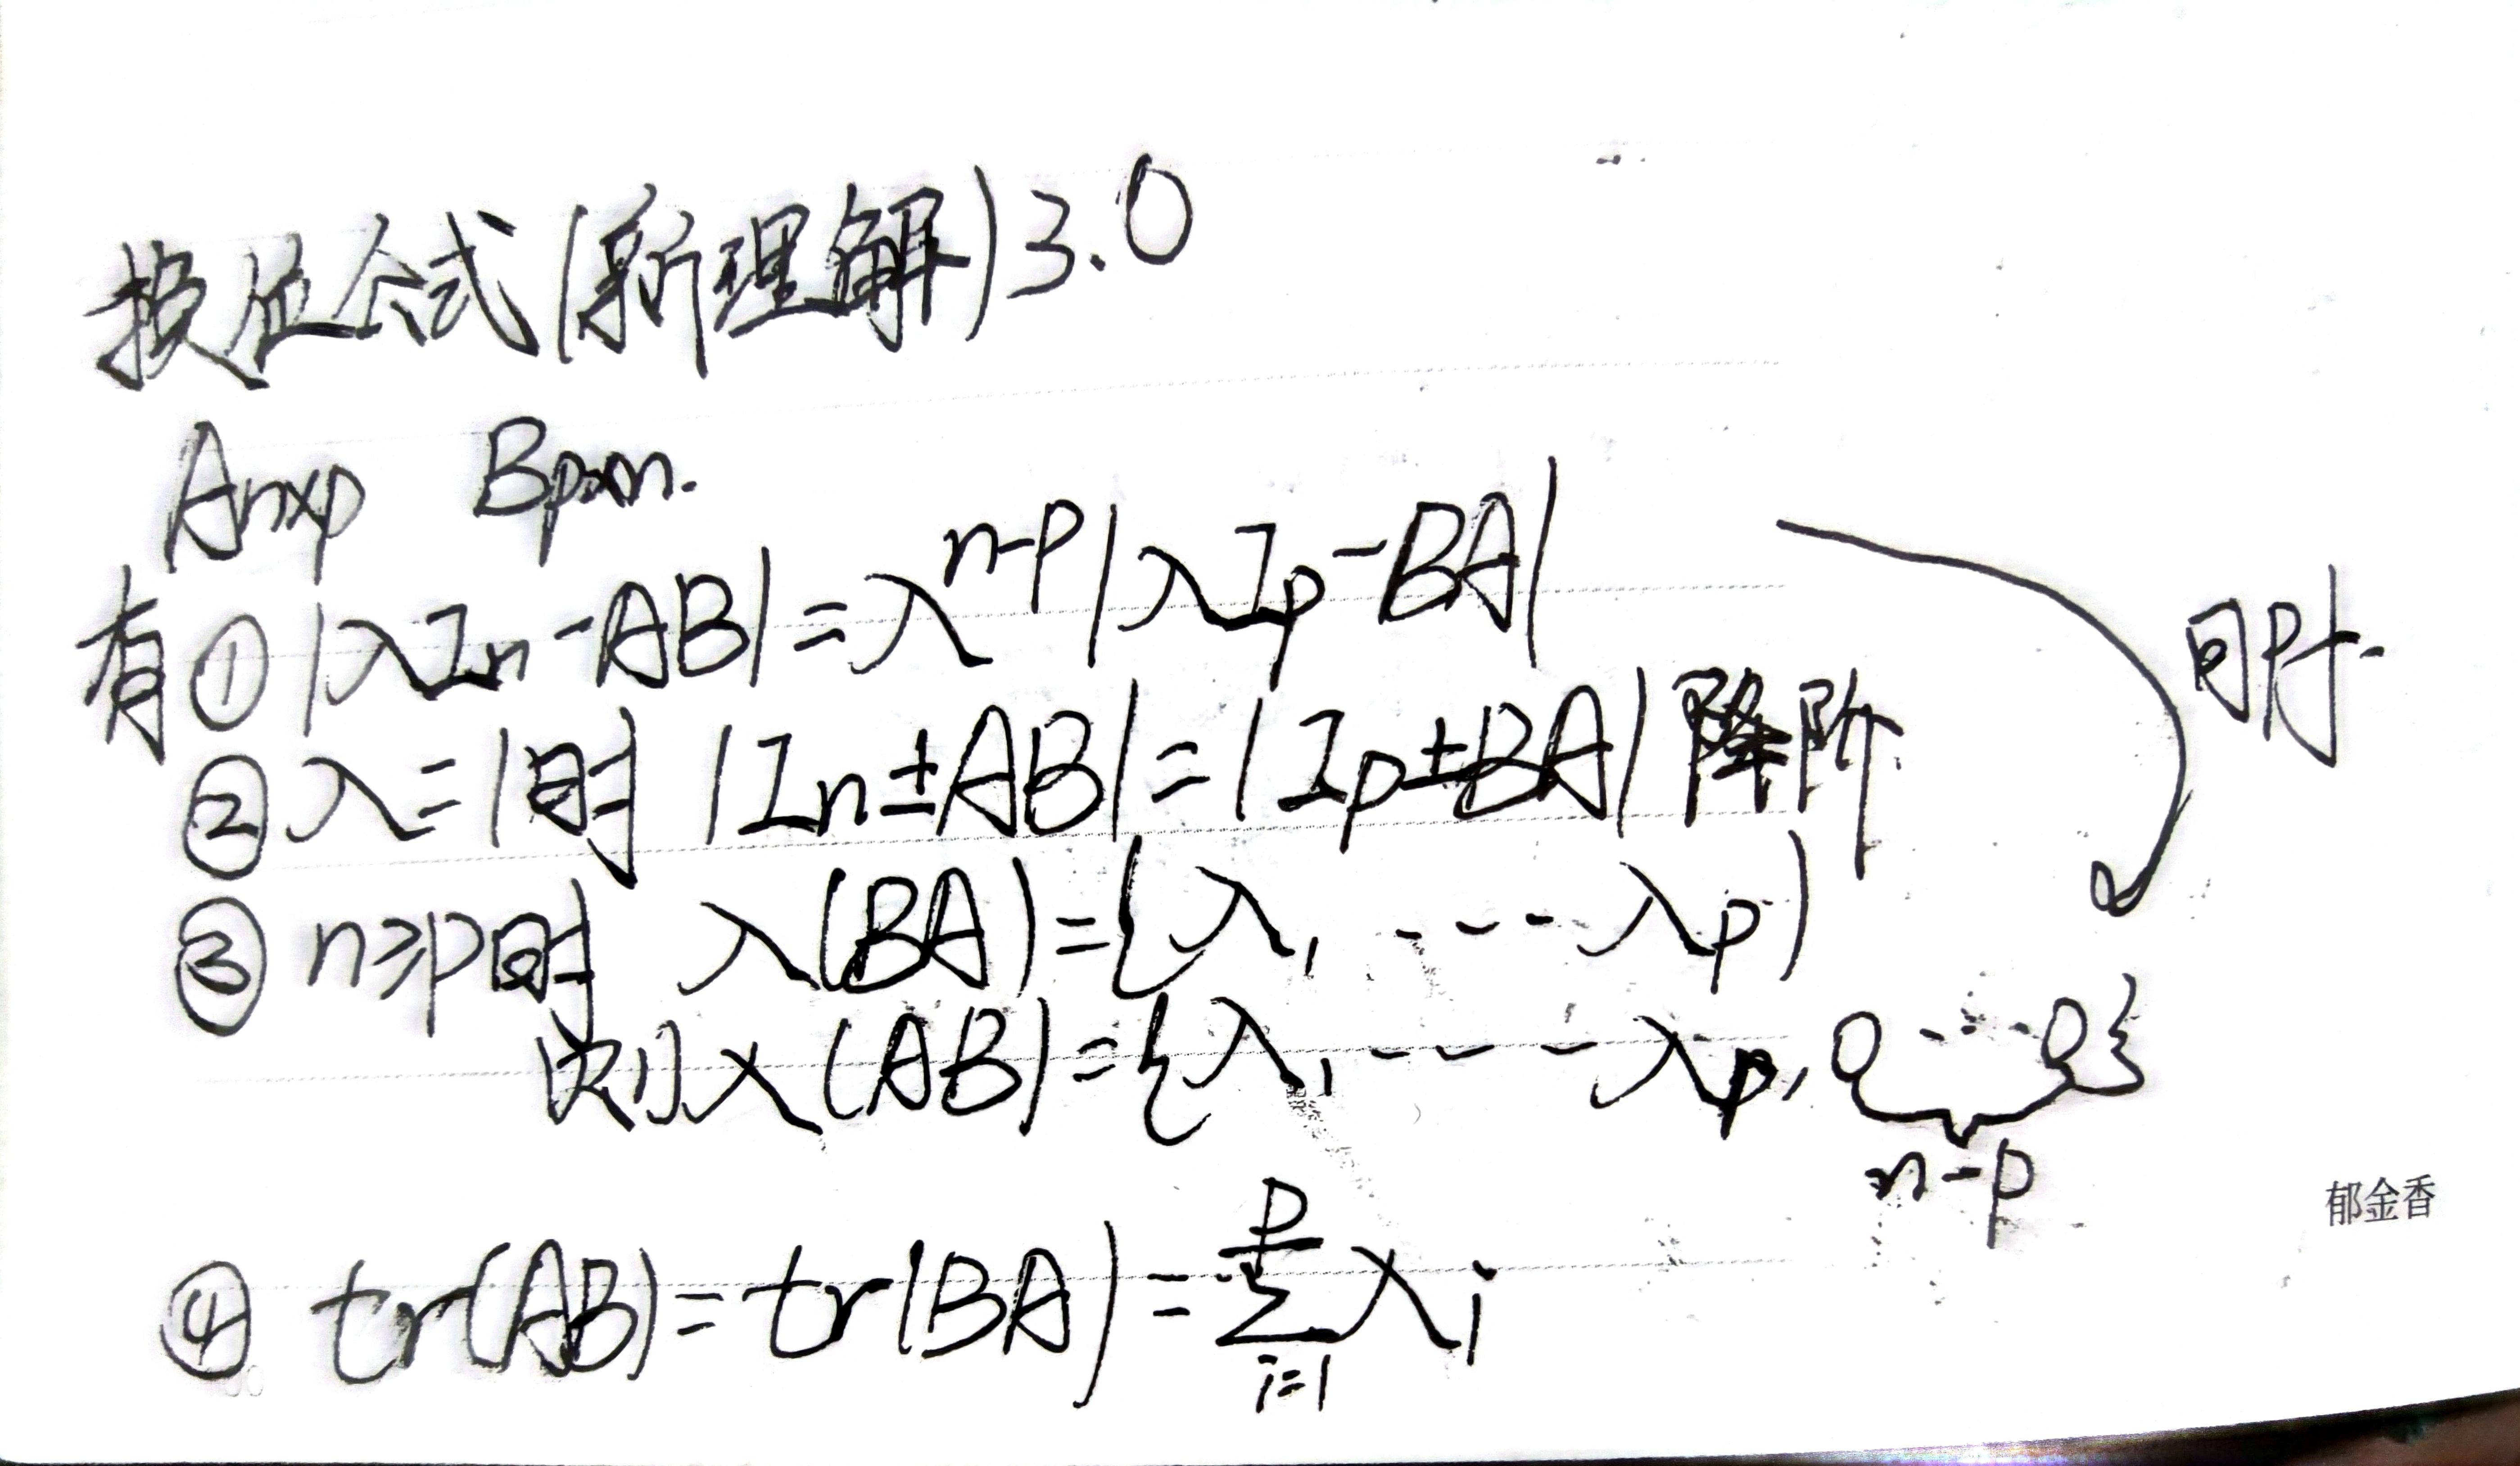 换位公式(新理解)3.0
Anxp Bpxn.
有①|λIn-AB|=λ^{n-p}|λIp-BA|
同时.
②λ=1时 |In±AB|=|Ip±BA|降阶.
③n≥p时 λ(BA)={λ1 ---- λp}
则λ(AB)={λ1, ---- λp, 0---0}
n-p
④ tr(AB)=tr(BA)=∑_{i=1}^{p} λi
郁金香